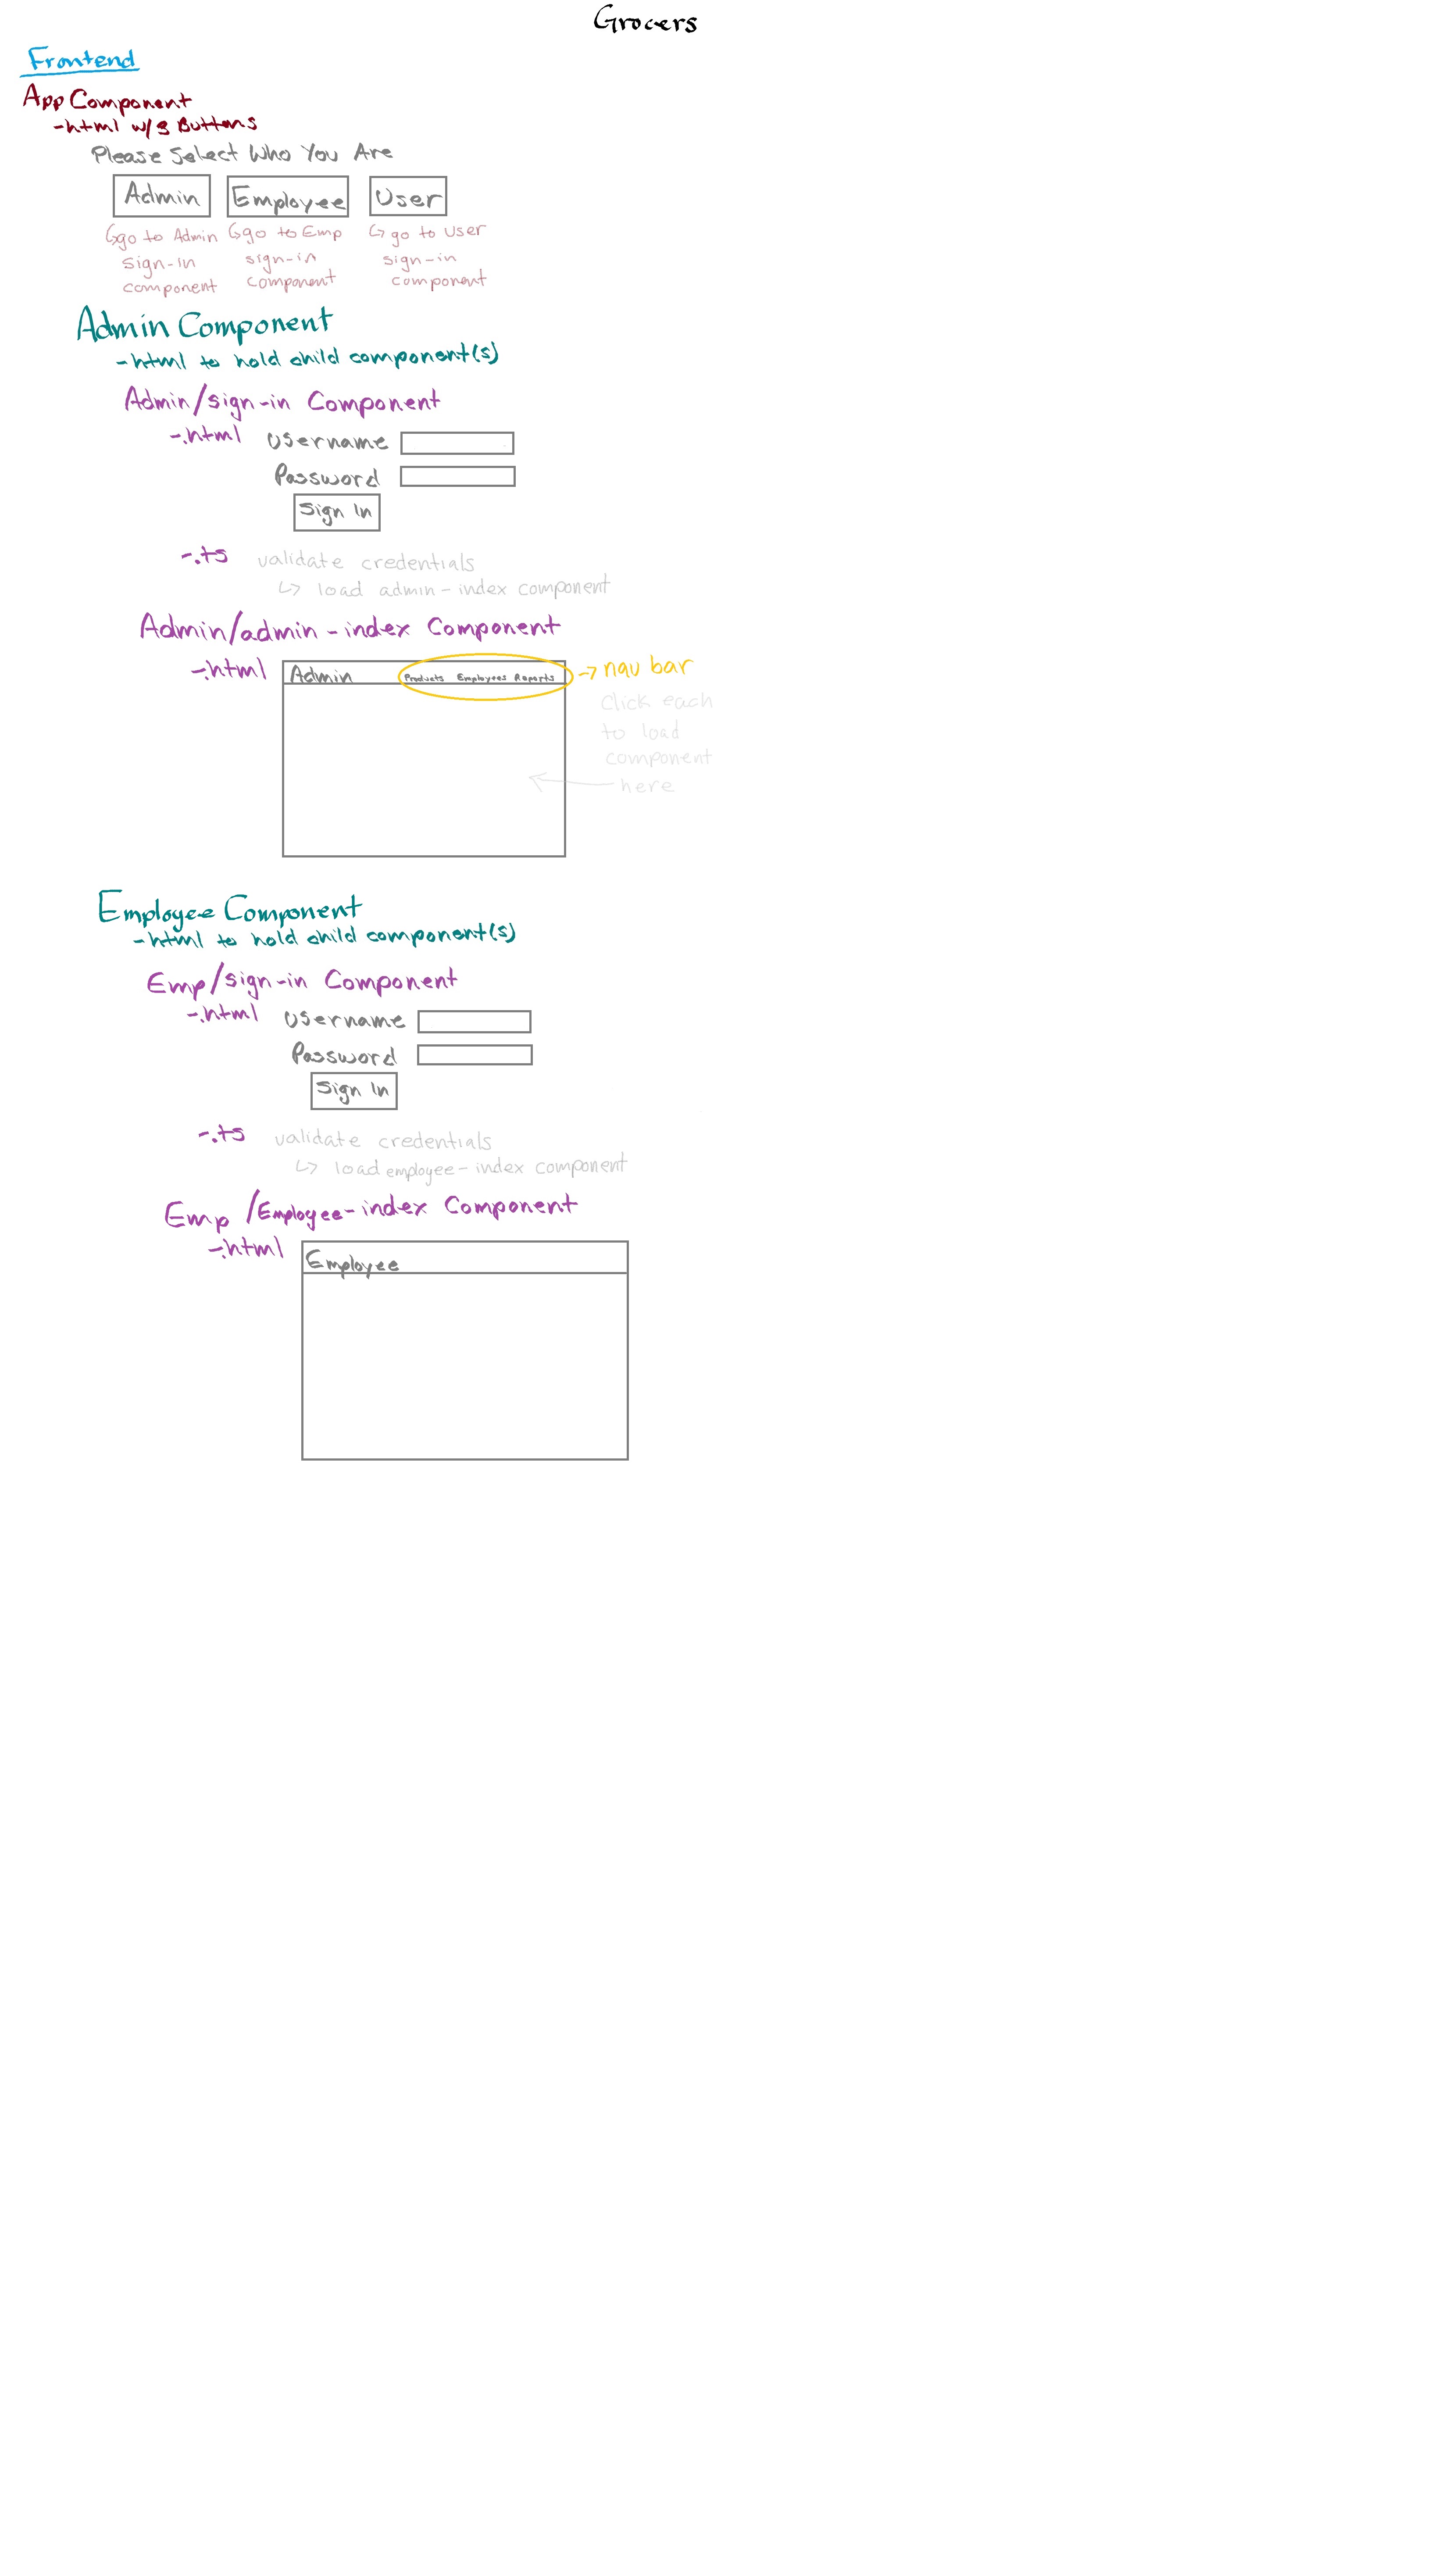 Grocers
Frontend
App Component
-html w/3 Buttons
Please Select Who You Are
Admin Employee User
↳go to Admin ↳go to Emp ↳ go to User
sign-in sign-in sign-in
component component component
Admin Component
-html to hold child component(s)
Admin/sign-in Component
-.html Username
Password
Sign In
-.ts validate credentials
↳ load admin-index component
Admin/admin-index Component
-.html Admin Products Employees Reports → nav bar
Click each
to load
component
here
Employee Component
-html to hold child component(s)
Emp/sign-in Component
-.html Username
Password
Sign In
-.ts validate credentials
↳ load employee-index component
Emp/Employee-index Component
-.html Employee